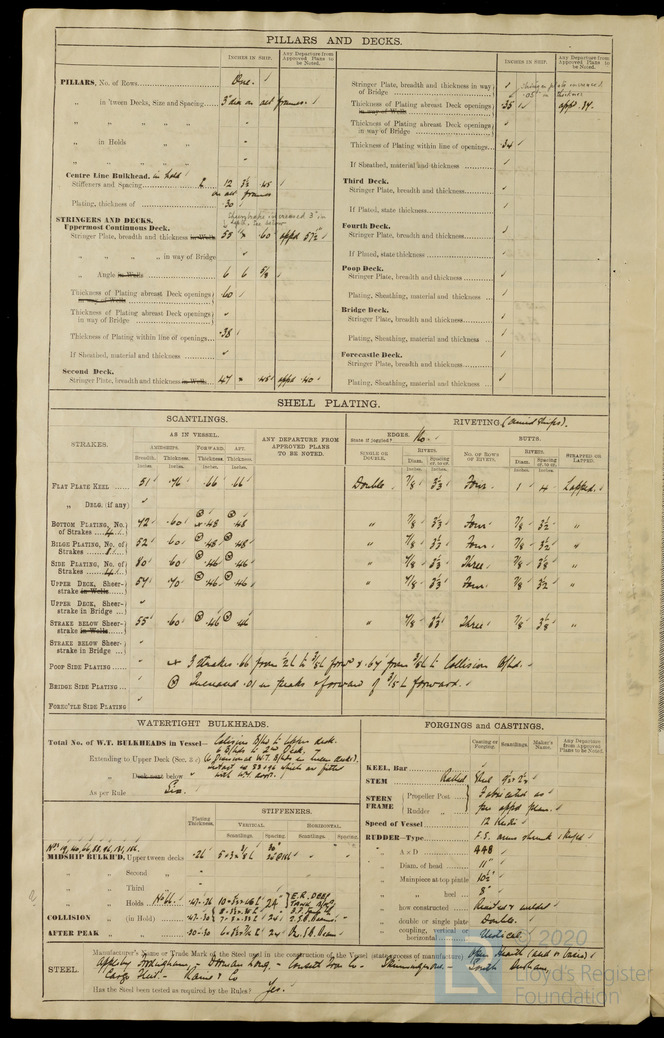 PILLARS AND DECKS.
INCHES IN SHIP.
Any Departure from Approved Plans to be Noted.
PILLARS, No. of Rows
One.
„ in 'tween Decks, Size and Spacing
3" dia on alt frames.
„ „ „ „
„ in Holds „
„ „ „ „
Centre Line Bulkhead. in hold
Stiffeners and Spacing
12 3½ .45
on alt frames
Plating, thickness of
.30
STRINGERS AND DECKS.
Uppermost Continuous Deck.
Stringer Plate, breadth and thickness in Wells
55 × .60 appd 57½
„ „ „ „ in way of Bridge
„ Angle in Wells
6 6 5/8
Thickness of Plating abreast Deck openings in way of Wells
.60
Thickness of Plating abreast Deck openings in way of Bridge
Thickness of Plating within line of openings
.38
If Sheathed, material and thickness
Second Deck.
Stringer Plate, breadth and thickness in Wells
47 × .45 appd .40
INCHES IN SHIP.
Any Departure from Approved Plans to be Noted.
Stringer Plate, breadth and thickness in way of Bridge
Thickness of Plating abreast Deck openings in way of Wells
.35 appd .34.
Thickness of Plating abreast Deck openings in way of Bridge
Thickness of Plating within line of openings
.34
If Sheathed, material and thickness
Third Deck.
Stringer Plate, breadth and thickness
If Plated, state thickness
Fourth Deck.
Stringer Plate, breadth and thickness
If Plated, state thickness
Poop Deck.
Stringer Plate, breadth and thickness
Plating, Sheathing, material and thickness
Bridge Deck.
Stringer Plate, breadth and thickness
Plating, Sheathing, material and thickness
Forecastle Deck.
Stringer Plate, breadth and thickness
Plating, Sheathing, material and thickness
SHELL PLATING.
SCANTLINGS.
RIVETING. (Amidships).
STRAKES.
AS IN VESSEL.
AMIDSHIPS. FORWARD. AFT.
Breadth. Thickness. Thickness. Thickness.
Inches. Inches. Inches. Inches.
ANY DEPARTURE FROM APPROVED PLANS TO BE NOTED.
EDGES.
State if joggled? No.
SINGLE OR DOUBLE.
RIVETS.
Diam. Spacing cr. to cr.
Inches. Inches.
BUTTS.
NO. OF ROWS OF RIVETS.
RIVETS.
Diam. Spacing cr. to cr.
Inches. Inches.
STRAPPED OR LAPPED.
FLAT PLATE KEEL 51 .76 .66 .66 Double. 7/8 3½ Four 1 4 Lapped.
„ DBLG. (if any)
BOTTOM PLATING, No. of Strakes 4 72 .60 .48 .48 „ 7/8 3½ Four 7/8 3½ „
BILGE PLATING, No. of Strakes 52 .60 .48 .48 „ 7/8 3½ Four 7/8 3½ „
SIDE PLATING, No. of Strakes 4 80 .60 .46 .46 „ 7/8 3½ Three 7/8 3⅛ „
UPPER DECK, Sheerstrake in Wells 57 .70 .46 .46 „ 7/8 3½ Four 7/8 3½ „
UPPER DECK, Sheerstrake in Bridge
STRAKE BELOW Sheerstrake in Wells 55 .60 .46 .46 „ 7/8 3½ Three 7/8 3⅛ „
STRAKE BELOW Sheerstrake in Bridge
POOP SIDE PLATING
3 Strakes .66 from ½L to 3/5L forwd & .64 from 3/5L to Collision Bhd.
BRIDGE SIDE PLATING
Increased .01 in peaks & forward of 3/5 L forward.
FOREC'TLE SIDE PLATING
WATERTIGHT BULKHEADS.
Total No. of W.T. BULKHEADS in Vessel—
Collision Bhd to Upper deck.
6 Bhds to 2nd Deck. 7
Extending to Upper Deck (Sec. 8 c)
„ Deck next below
As per Rule
Six.
Plating Thickness.
STIFFENERS.
VERTICAL.
HORIZONTAL.
Scantlings. Spacing. Scantlings. Spacing.
MIDSHIP BULKH'D, Upper tween decks
.26
„ „ Second „
„ „ Third „
„ „ Holds
.47-.26
COLLISION „ (in Hold)
AFTER PEAK „ „
FORGINGS and CASTINGS.
Casting or Forging. Scantlings. Maker's Name. Any Departure from Approved Plans to be Noted.
KEEL, Bar
STEM
Rolled Steel
STERN FRAME
Propeller Post
Rudder „
Fabricated as
per appd plan.
Speed of Vessel
12 Knots
RUDDER—Type
„ A × D
448
„ Diam. of head
11"
„ Mainpiece at top pintle
10½"
„ „ heel
8"
„ how constructed
„ double or single plate
Double.
„ coupling, vertical or horizontal
Vertical
STEEL.
Manufacturer's Name or Trade Mark of the Steel used in the construction of the Vessel (state process of manufacture)
Open Hearth (acid or basic)
Appleby Frodingham, – Dorman Long, – Consett Iron Co – Skinningrove. – South Durham
Cargo Fleet –
Has the Steel been tested as required by the Rules?
Yes.
© 2020
LR
Lloyd's Register
Foundation